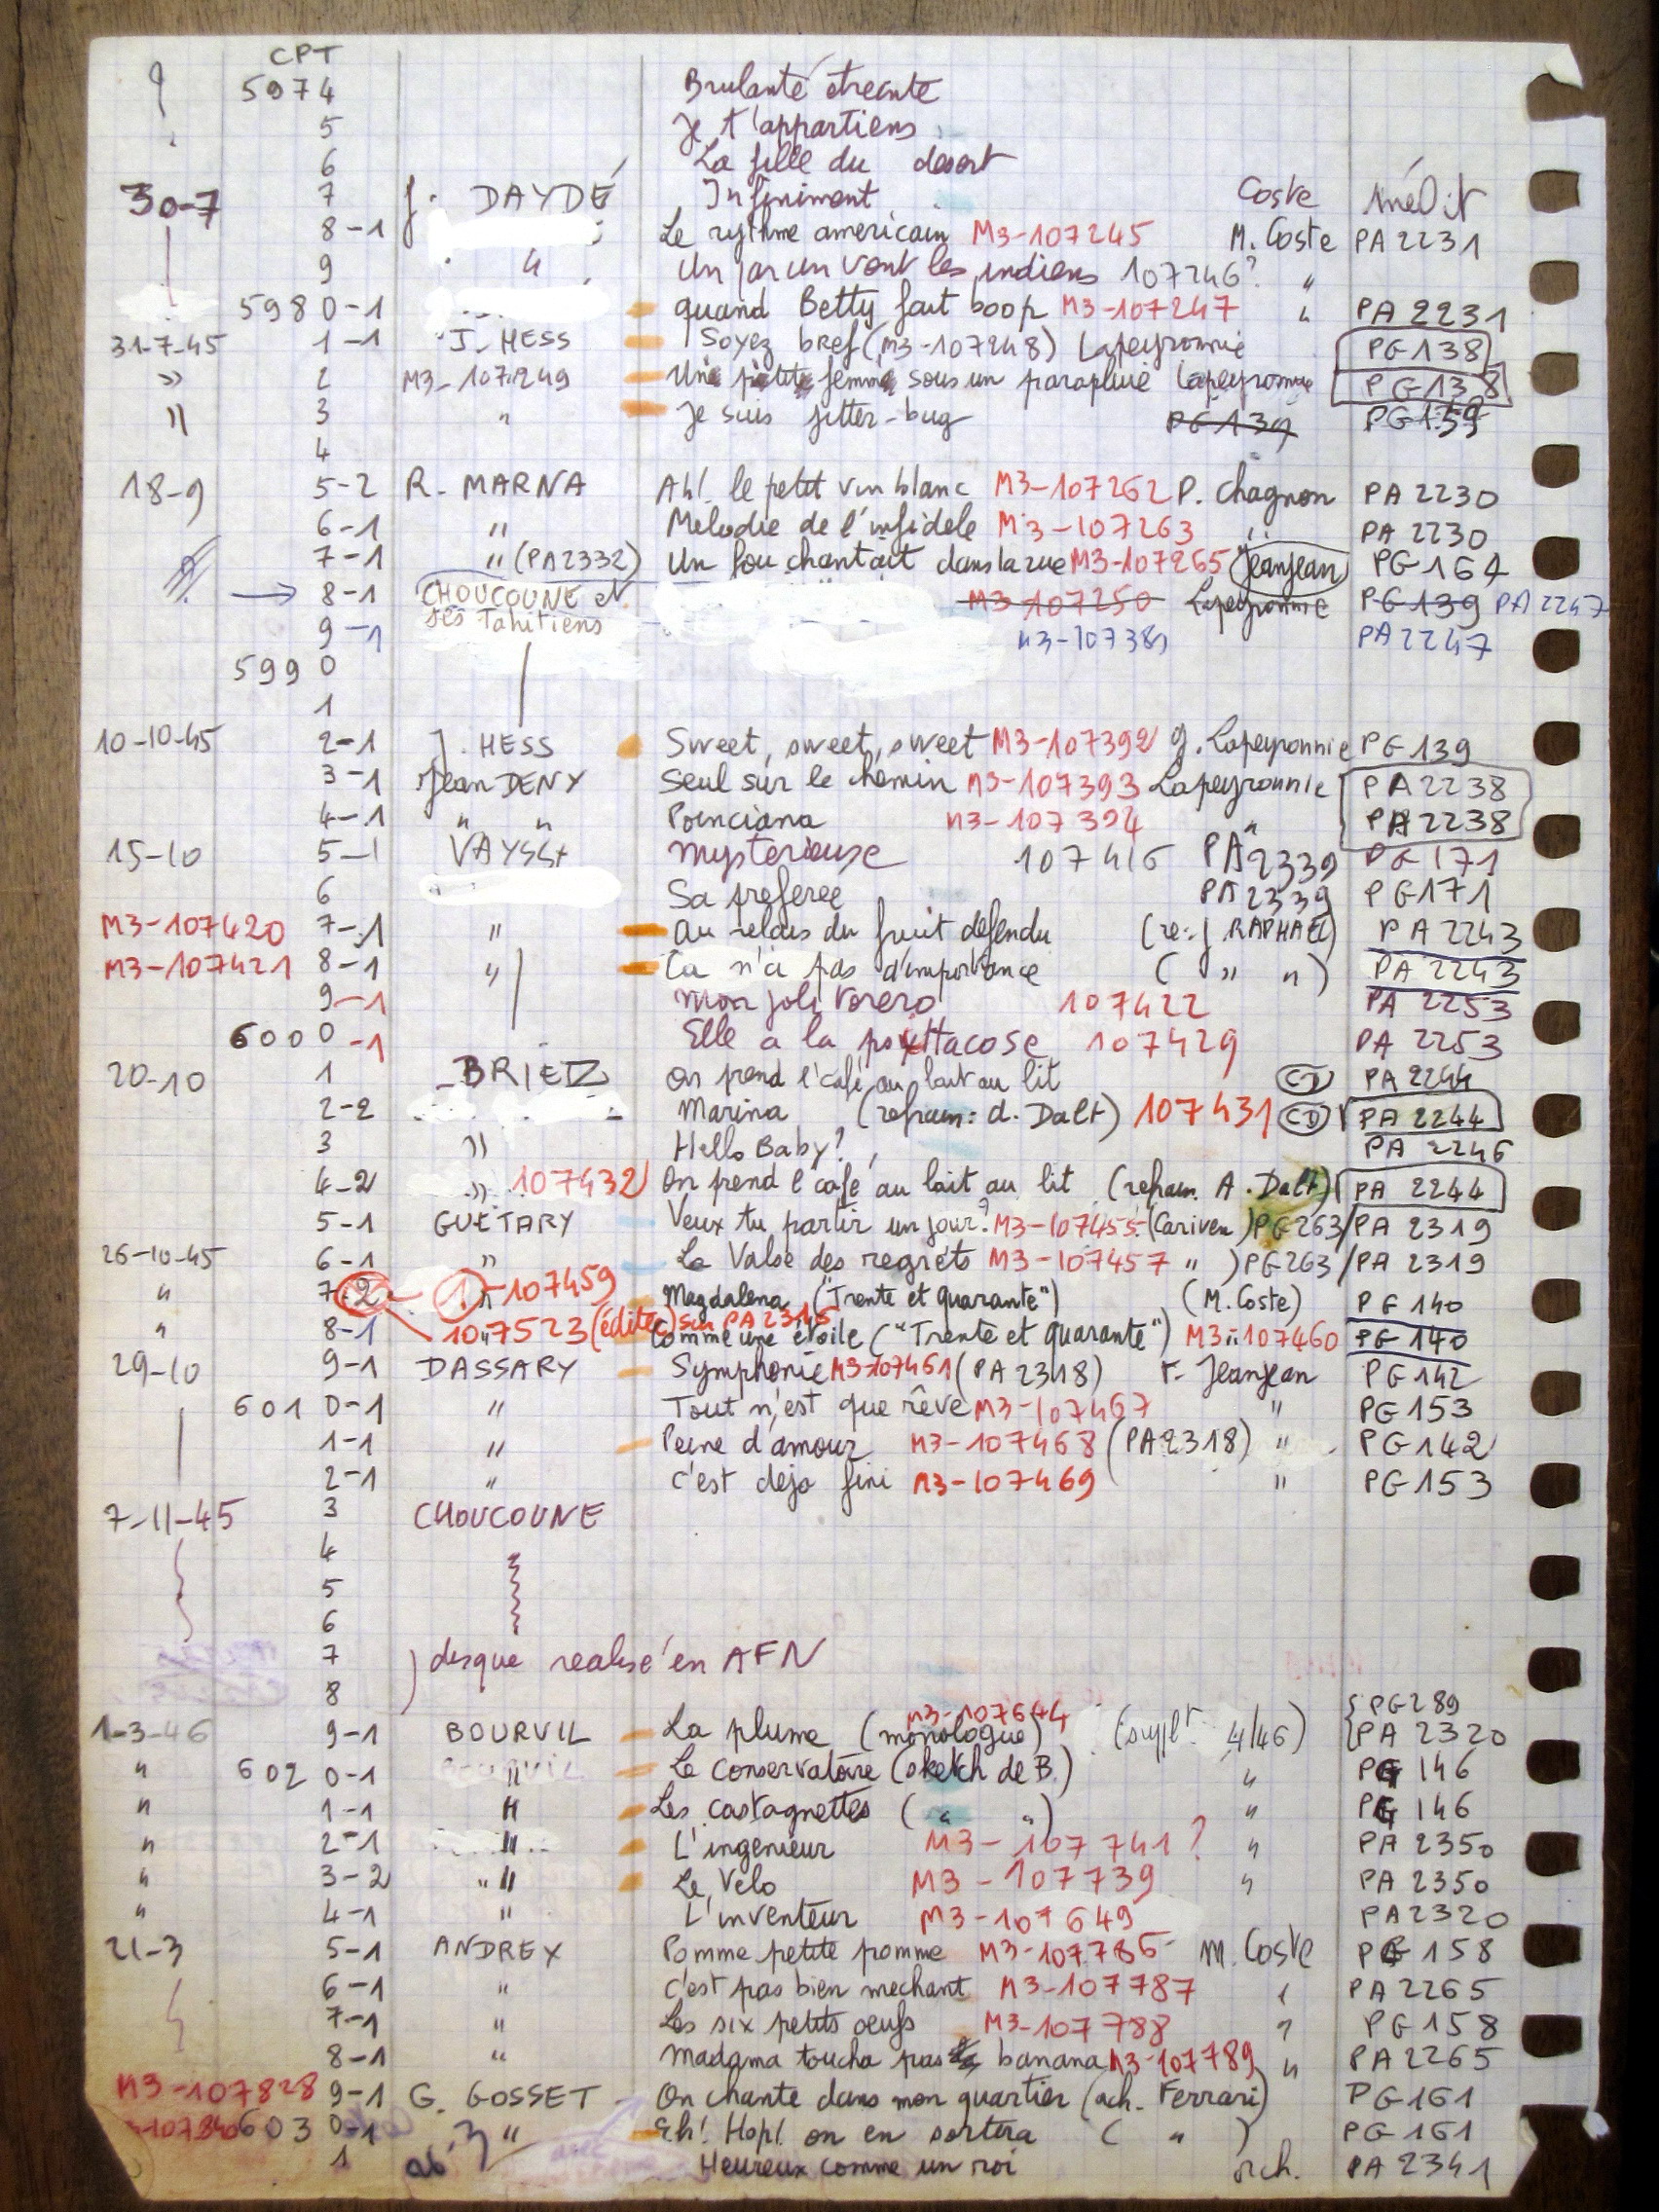 CPT
5974 Brulante etreinte
5 Je t'appartiens
6 La fille du desert
30-7 7 J. DAYDÉ Infiniment Coste inédit
8-1 Le rythme americain M3-107245 M. Coste PA 2231
9 " Un par un vont les indiens 107246? "
5980-1 quand Betty fait boop M3-107247 " PA 2231
31-7-45 1-1 J. HESS Soyez bref (M3-107248) Lapeyronnie PG 138
" 2 M3-107249 Une petite femme sous un parapluie Lapeyronnie PG 138
" 3 " Je suis jitter-bug PG 139 PG 159
4
18-9 5-2 R. MARNA Ah! le petit vin blanc M3-107262 P. Chagnon PA 2230
6-1 " Melodie de l'infidele M3-107263 " PA 2230
7-1 " (PA2332) Un fou chantait dans la rue M3-107265 (Jeanjean) PG 164
→ 8-1 CHOUCOUNE et M3-107250 Lapeyronnie PG 139 PA 2247
ses Tahitiens
9-1 M3-107389 PA 2247
5990
1
10-10-45 2-1 J. HESS Sweet, sweet, sweet M3-107392 G. Lapeyronnie PG 139
3-1 Jean DENY Seul sur le chemin M3-107393 Lapeyronnie PA 2238
4-1 " " Poinciana M3-107394 " PA 2238
15-10 5-1 VAYSSE mysterieuse 107416 PA 2339 PG 171
6 Sa preferee PA 2339 PG 171
M3-107420 7-1 " au relais du fruit defendu (re: J. RAPHAEL) PA 2243
M3-107421 8-1 " Ca n'a pas d'importance ( " " ) PA 2243
9-1 Mon joli torero 107422 PA 2253
6000-1 Elle a la psittacose 107429 PA 2253
20-10 1 BRIEZ on prend l'café au lait au lit CD PA 2244
2-2 Marina (refrain: d. Dalt) 107431 CD PA 2244
3 " Hello Baby? PA 2246
4-2 " 107432 On prend l'café au lait au lit (refrain. A. Dalt) PA 2244
5-1 GUETARY Veux tu partir un jour? M3-107455 (Cariven) PG 263/PA 2319
26-10-45 6-1 " La Valse des regrets M3-107457 " ) PG 263/PA 2319
" 7-2 1 - 107459 Magdalena ("Trente et quarante") (M. Coste) PG 140
107523 (édité) sur PA 2315
" 8-1 " Comme une étoile ("Trente et quarante") M3-107460 PG 140
29-10 9-1 DASSARY Symphonie M3-107461 (PA 2318) F. Jeanjean PG 142
6010-1 " Tout n'est que rêve M3-107467 " PG 153
1-1 " Peine d'amour M3-107468 (PA 2318) " PG 142
2-1 " C'est deja fini M3-107469 " PG 153
7-11-45 3 CHOUCOUNE
4
5
6
7 disque realisé en AFN
8
M3-107644 PG 289
1-3-46 9-1 BOURVIL La plume (monologue) (supplt 4/46) PA 2320
" 6020-1 " Le conservatoire (sketch de B.) " PG 146
" 1-1 " Les castagnettes ( " " ) " PG 146
" 2-1 " L'ingenieur M3-107741? " PA 2350
" 3-2 " Le Velo M3-107739 " PA 2350
" 4-1 " L'inventeur M3-107649 PA 2320
21-3 5-1 ANDREX Pomme petite pomme M3-107786 M. Coste PG 158
6-1 " C'est pas bien mechant M3-107787 " PA 2265
7-1 " Les six petits oeufs M3-107788 " PG 158
8-1 " Madama toucha pas banana M3-107789 " PA 2265
M3-107828 9-1 G. GOSSET On chante dans mon quartier (och. Ferrari) PG 161
6030-1 " Eh! Hop! on en sortira ( " ) PG 161
1 Heureux comme un roi och. PA 2341